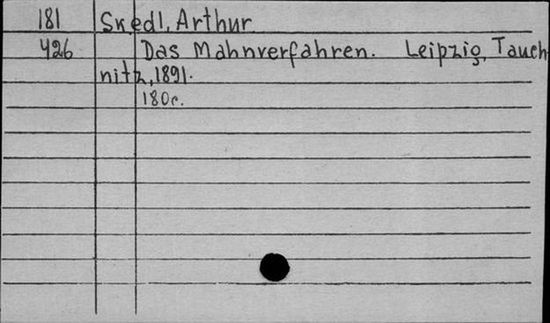 181 Skedl, Arthur
426 Das Mahnverfahren. Leipzig, Tauch
nitz, 1891.
180c.